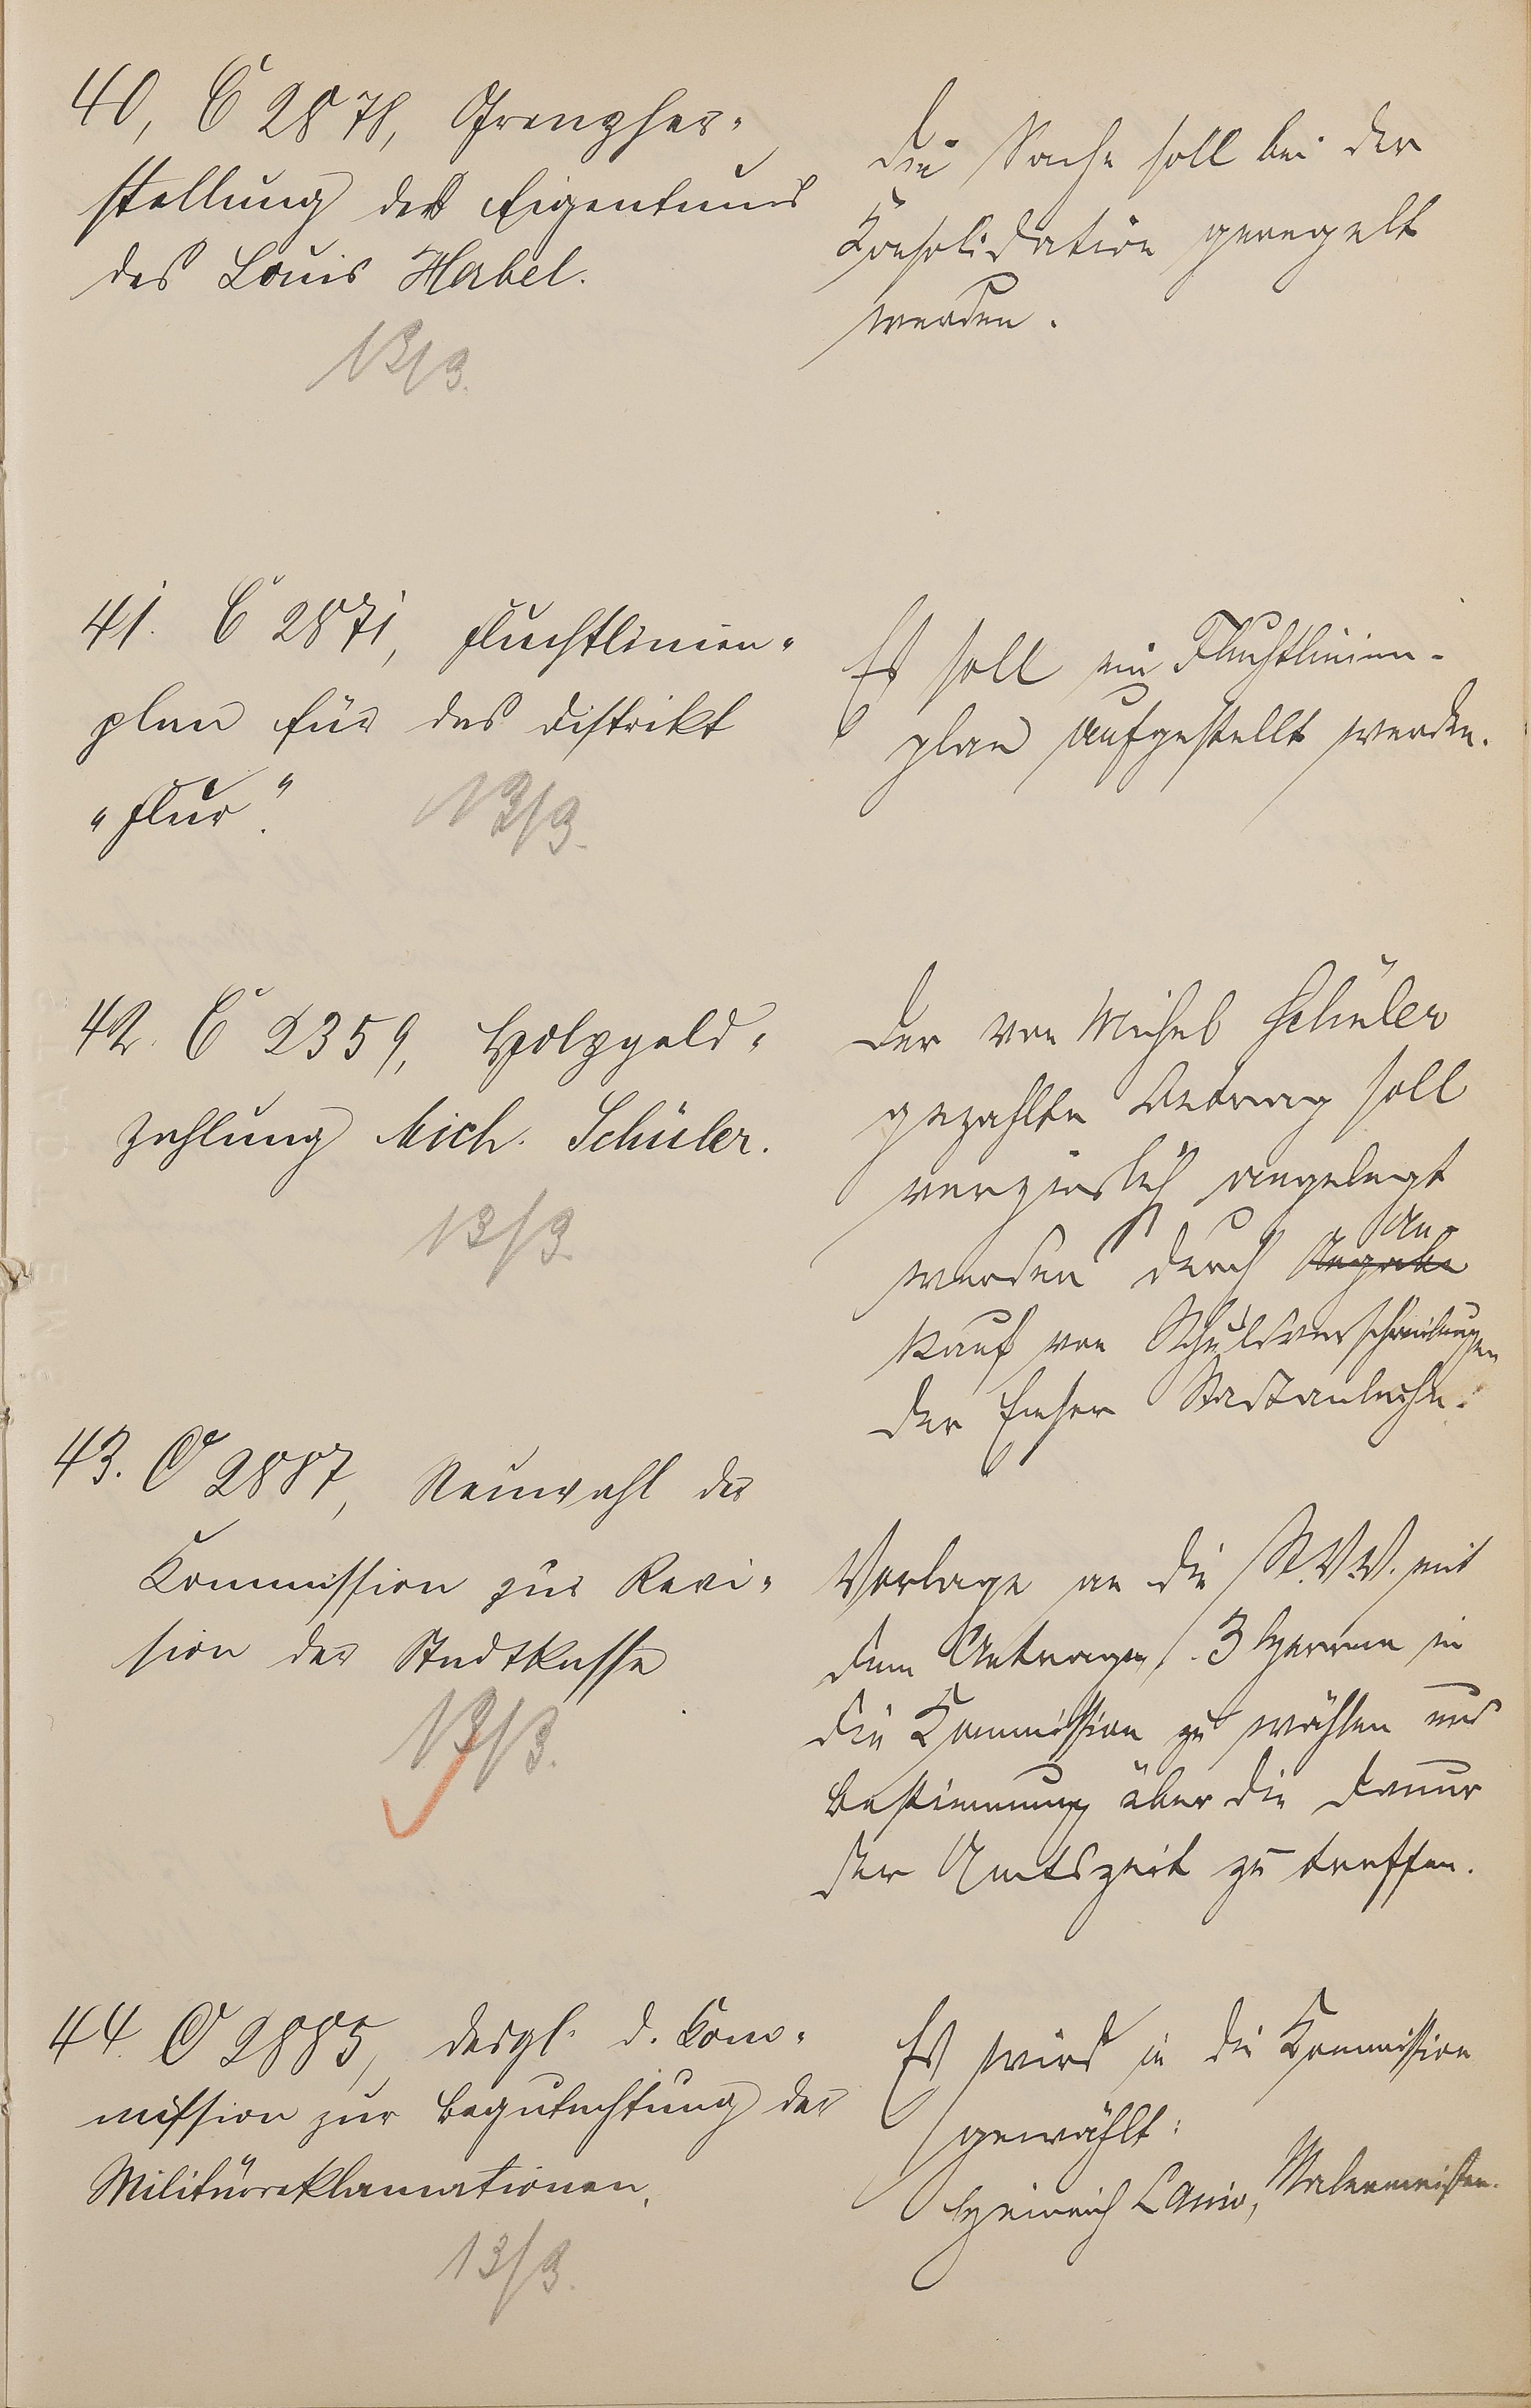 40, C 2878, Grenzher-
stellung des Eigentums
des Louis Habel.
13/3.
Die Sache soll bei der
Konsolidation geregelt
werden.
41. C 2871, Fluchtlinien-
plan für das Distrikt
"Flur".
13/3.
Es soll ein Fluchtlinien-
plan aufgestellt werden.
42. C 2359, Holzgeld-
zahlung Mich. Schüler.
13/3.
Der von Michel Schüler
gezahlte Betrag soll
verzinslich angelegt
An-
werden durch
kauf von Schuldverschreibungen
der Emser Stadtanleihe.
43. C 2887, Neuwahl der
Kommission zur Revi-
sion der Stadtkasse
13/3.
Vorlage an die St.V.V. mit
dem Antrage, 3 Herren in
die Kommission zu wählen und
Bestimmung über die Dauer
der Amtszeit zu treffen.
44. C 2885, desgl. d. Kom-
mission zur Begutachtung der
Militärreklamationen.
13/3.
Es wird in die Kommission
gewählt:
Heinrich Malermeister.